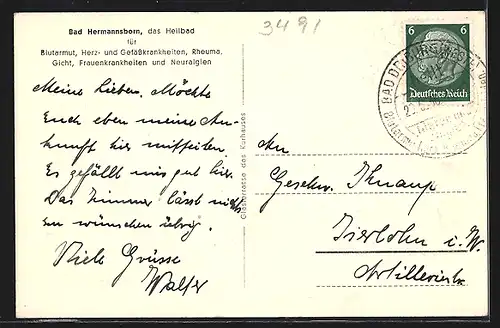 Bad Hermannsborn, das Heilbad
für
Blutarmut, Herz- und Gefäßkrankheiten, Rheuma,
Gicht, Frauenkrankheiten und Neuralgien
3491
Meine Lieben, Möchte
Euch eben meine An-
kunft hier mitteilen
Es gefällt mir gut hier.
Das Zimmer lässt nichts
zu wünschen übrig.
Viele Grüsse
Walter
Glasterrasse des Kurhauses
6 6
Deutsches Reich
BAD DRIBURG
An
Geschw. Knaup
Iserlohn i. W.
Artilleriestr.